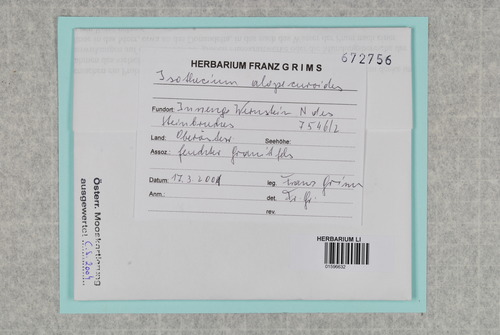 HERBARIUM FRANZ GRIMS
672756
Isothecium alopecuroides
Fundort: Innenge Wernstein N des
Steinbruches 7546/2
Land: Oberösterr Seehöhe:
Assoz.: feuchter Granitfels
Datum: 17.3.2001 leg. Franz Grims
Anm.: det. Fr. Gr.
rev.
HERBARIUM LI
01596632
Österr. Mooskartierung
ausgewertet 2009